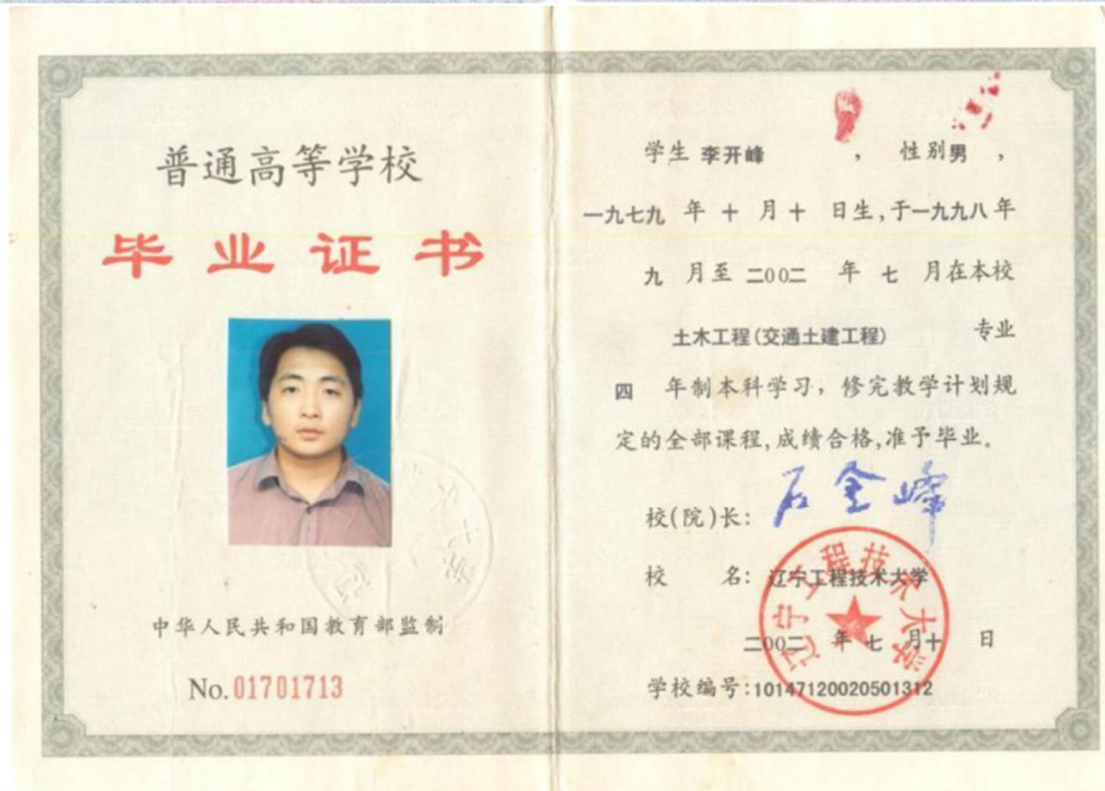 普通高等学校
毕业证书
中华人民共和国教育部监制
No.01701713
学生 李开峰 ， 性别男 ，
一九七九 年 十 月 十 日生,于一九九八年
九 月至 二00二 年 七 月在本校
土木工程(交通土建工程) 专业
四 年制本科学习，修完教学计划规
定的全部课程,成绩合格,准予毕业。
校(院)长: 石金峰
校 名: 辽宁工程技术大学
二00二 年 七 月十 日
学校编号:10147120020501312
辽宁工程技术大学